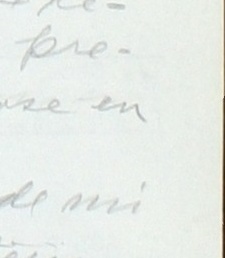 re-
pre-
ose en
de mi